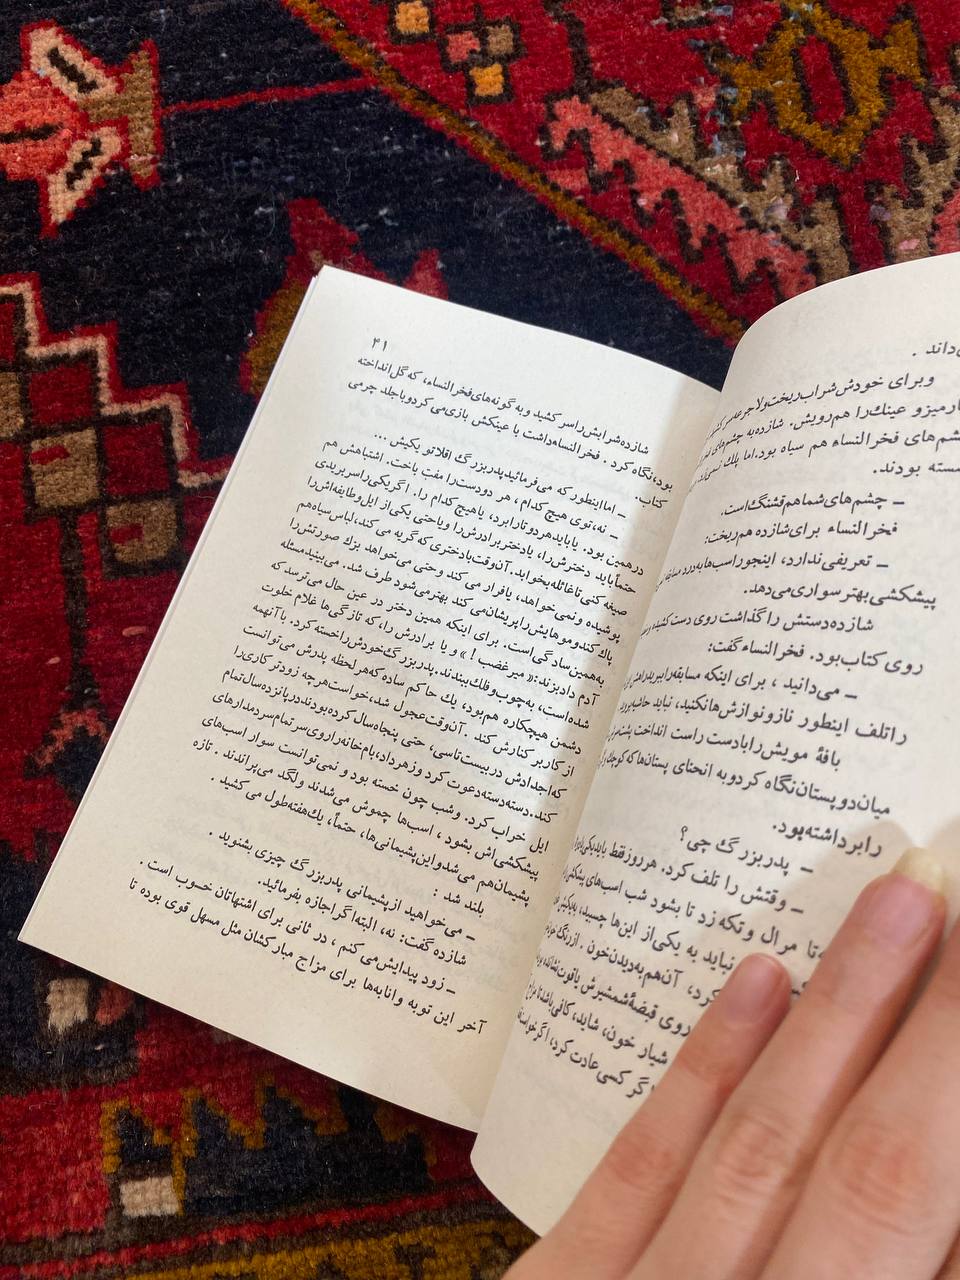 ‌داند .
وبرای خودش شراب ریخت ولاجرعه سر کشید
رمیزو عینك را هم رویش. شازده به چشم‌های
شم‌های فخرالنساء هم سیاه بود. اما پلك
سته بودند.
ــ چشم‌های شما هم قشنگ است.
فخرالنساء برای شازده هم ریخت:
ــ تعریفی ندارد، اینجور اسب‌ها به درد مسابقه
پیشکشی بهتر سواری می‌دهد.
شازده دستش را گذاشت روی دست کشیده
روی کتاب بود. فخرالنساء گفت:
ــ می‌دانید ، برای اینکه مسابقه را ببرید
را تلف اینطور نازونوازش‌ها نکنید، نباید
بافهٔ مویش را بادست راست انداخت پشت
میان دو پستان نگاه کرد و به انحنای پستان‌ها که کوچك
را برداشته بود.
ــ پدربزرگ چی؟
ــ وقتش را تلف کرد. هر روز فقط باید یکی
تا مرال و تکه زد تا بشود شب اسب‌های پیشکشی
نباید به یکی از این‌ها چسبید، به یکیش
کرد، آن هم به دیدن خون . از رنگ
روی قبضهٔ شمشیرش یاقوت نشانده
شیار خون، شاید، کافی باشد تا
اگر کسی عادت کرد، اگر خواست
۴۱
شازده شرابش را سر کشید و به گونه‌های فخرالنساء، که گل انداخته
بود، نگاه کرد . فخرالنساء داشت با عینکش بازی می‌کرد و با جلد چرمی
کتاب.
ــ اما اینطور که می‌فرمائید پدربزرگ اقلا تو یکیش ...
ــ نه، توی هیچ کدام ، هر دو دست را مفت باخت. اشتباهش هم
در همین بود. یا باید هر دو تا را برد، یا هیچ کدام را. اگر یکی را سر بریدی
حتماً باید دخترش را، یا دختر برادرش را و یا حتی یکی از ایل و طایفه‌اش را
صیغه کنی تا غائله بخوابد. آن وقت با دختری که گریه می‌کند، لباس سیاه هم
پوشیده و نمی‌خواهد، یا فرار می‌کند و حتی می‌خواهد بزك صورتش را
پاك کند و موهایش را پریشان می‌کند بهتر می‌شود طرف شد. می‌بینید مسئله
به همین سادگی است. برای اینکه همین دختر در عین حال می‌ترسد که
آدم داد بزند: « میرغضب ! » و یا برادرش را، که تازگی‌ها غلام خلوت
شده است، به چوب و فلك ببندند. پدربزرگ خودش را خسته کرد. با آنهمه
دشمن هیچکاره هم بود، یك حاکم ساده که هر لحظه پدرش می‌توانست
از کار بر کنارش کند . آن وقت عجول شد، خواست هرچه زودتر کاری را
که اجدادش در بیست تا سی، حتی پنجاه سال کرده بودند در پانزده سال تمام
کند. دسته دسته دعوت کرد و زهر داد، بام خانه را روی سر تمام سردمدارهای
ایل خراب کرد. و شب چون خسته بود و نمی‌توانست سوار اسب‌های
پیشکشی‌اش بشود ، اسب‌ها چموش می‌شدند و لگد می‌پراندند . تازه
پشیمان هم می‌شد و این پشیمانی‌ها، حتماً، یك هفته طول می‌کشید .
بلند شد :
ــ می‌خواهید از پشیمانی پدربزرگ چیزی بشنوید .
شازده گفت: نه، البته اگر اجازه بفرمائید.
ــ زود پیدایش می‌کنم ، در ثانی برای اشتهاتان خسوب است .
آخر این توبه و انابه‌ها برای مزاج مبارکشان مثل مسهل قوی بوده تا